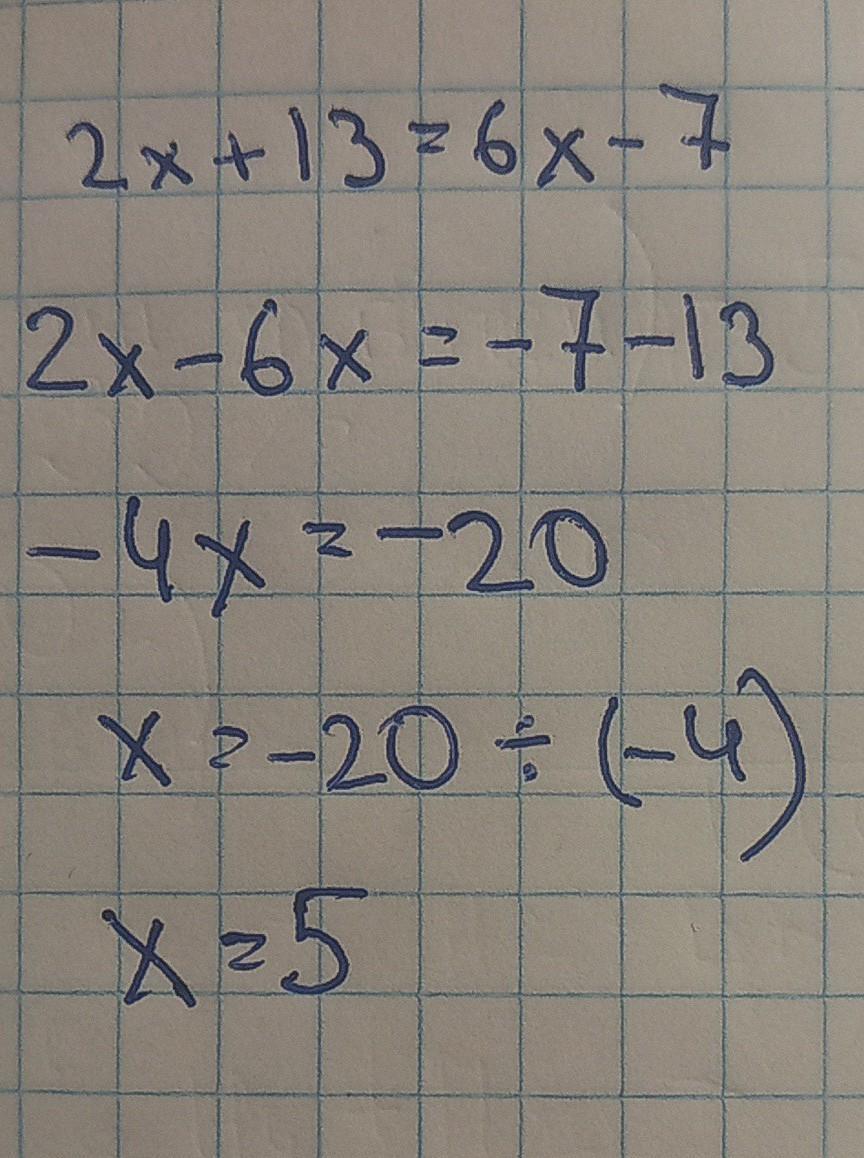 2x+13=6x-7
2x-6x=-7-13
-4x=-20
x=-20÷(-4)
x=5